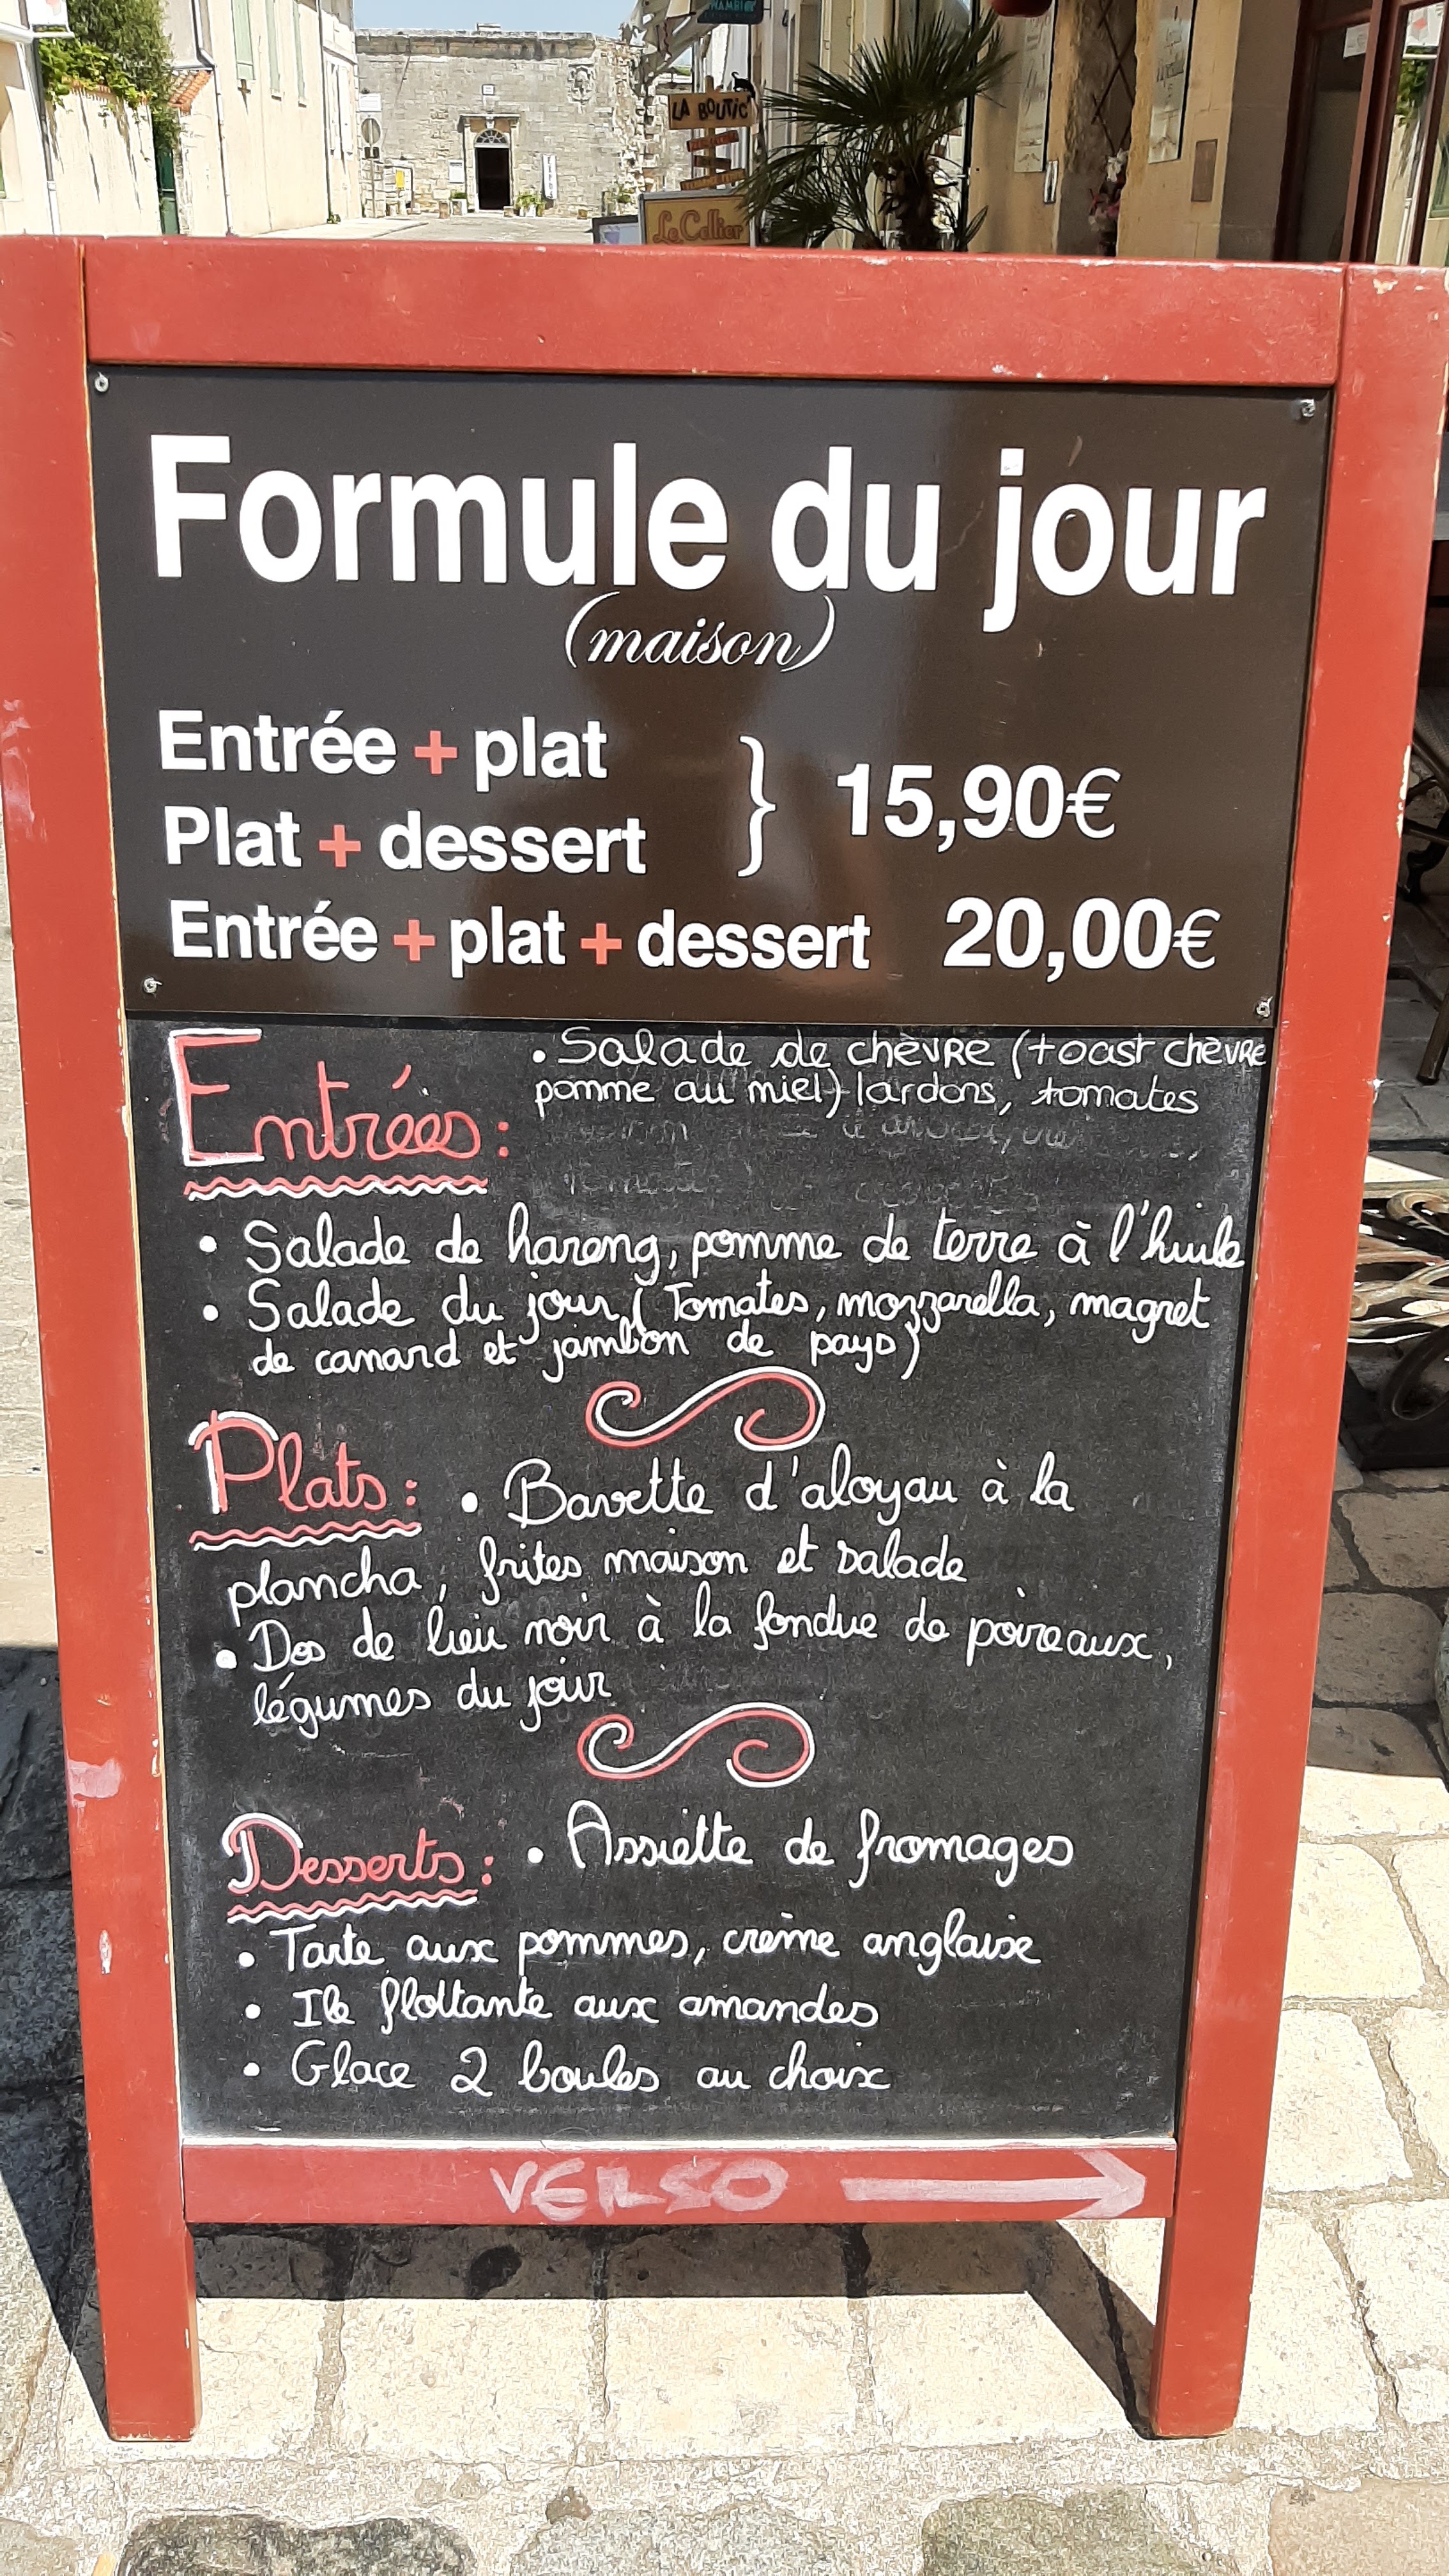 LA BOUTIC
Le Cellier
Formule du jour
(maison)
Entrée + plat
Plat + dessert
} 15,90€
Entrée + plat + dessert 20,00€
Entrées : • Salade de chèvre (toast chèvre
pomme au miel) lardons, tomates
• Salade de hareng, pomme de terre à l'huile
• Salade du jour ( Tomates, mozzarella, magret
de canard et jambon de pays)
Plats : • Bavette d'aloyau à la
plancha, frites maison et salade
• Dos de lieu noir à la fondue de poireaux,
légumes du jour
Desserts : • Assiette de fromages
• Tarte aux pommes, crème anglaise
• Ile flottante aux amandes
• Glace 2 boules au choix
VERSO →